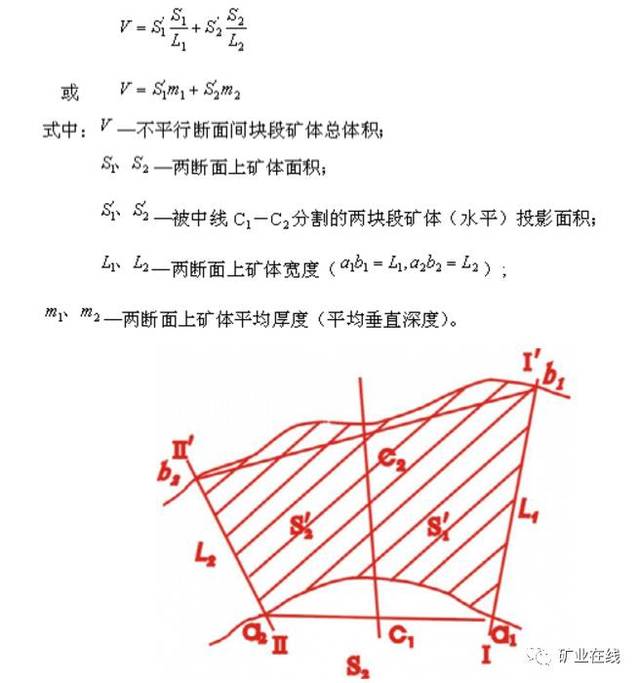 V = S′₁ S₁/L₁ + S′₂ S₂/L₂
或 V = S′₁m₁ + S′₂m₂
式中：V—不平行断面间块段矿体总体积；
S₁、S₂—两断面上矿体面积；
S′₁、S′₂—被中线C₁－C₂分割的两块段矿体（水平）投影面积；
L₁、L₂—两断面上矿体宽度（a₁b₁ = L₁,a₂b₂ = L₂）；
m₁、m₂—两断面上矿体平均厚度（平均垂直深度）。
I′ b₁
II′
b₂
C₂
S′₂ S′₁ L₁
L₂
a₂ II C₁ a₁
I
S₂
矿业在线